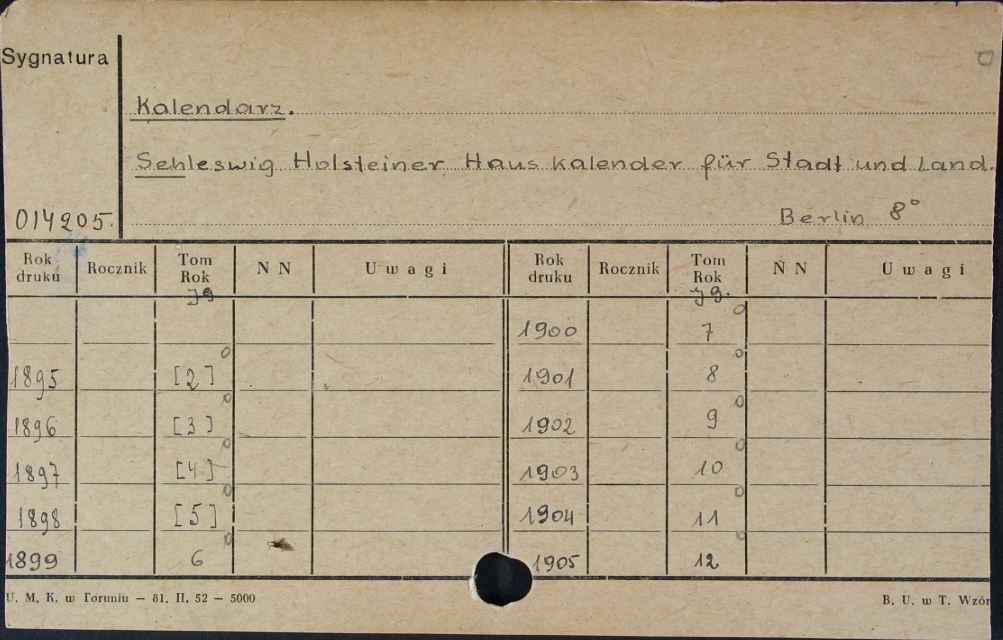 Sygnatura
Kalendarz.
Schleswig Holsteiner Haus kalender für Stadt und Land.
014205. Berlin 8°
Rok druku Rocznik Tom Rok N N Uwagi Rok druku Rocznik Tom Rok N N Uwagi
Jg Jg.
1900 7
1895 [2] 1901 8
1896 [3] 1902 9
1897 [4] 1903 10
1898 [5] 1904 11
1899 6 1905 12
U. M. K. w Toruniu — 81. II. 52 — 5000 B. U. w T. Wzór